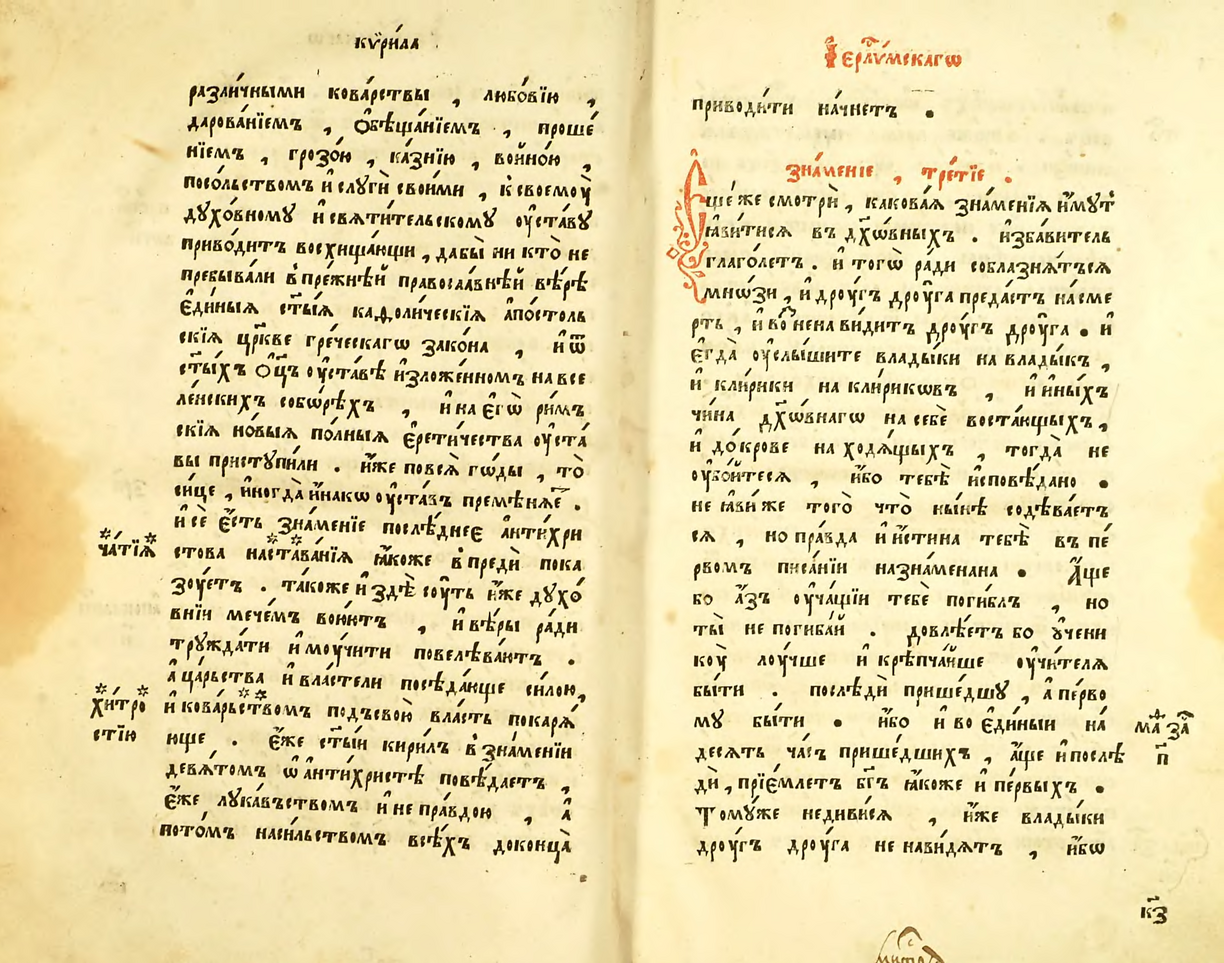 кѵри́ла
разли́чными кова́рствы , любо́вїю ,
дарова́нїемъ , ѻ҆бѣща́нїемъ , проше́
нїемъ , грозо́ю , ка́знїю , войно́ю ,
посо́льствомъ и҆ слꙋги̑ свои́ми , к своемоу̀
дꙋхо́вномꙋ и҆ свѧти́тельскомꙋ оу҆ста́вꙋ
приво́дитъ восхища́ющи , дабы̀ ни кто̀ не
пребыва́ли в пре́жнѣй правосла́внѣй вѣ́рѣ
є҆ди́ныѧ ст҃ы́ѧ каѳоли́ческїѧ а҆по́столь
скїѧ цр҃кве гре́ческагѡ зако́на , и҆ ѿ
ст҃ы́хъ ѻ҆ц҃ъ оу҆ста́вѣ и҆зложе́нномъ на все
ле́нскихъ собѡ́рѣхъ , и҆ на є҆гѡ̀ ри́мъ
скїѧ но́выѧ по́лныѧ є҆рети́чества оу҆ста́
вы пристꙋпи́ли . и҆́же повсѧ̀ гѡ́ды , то̀
си́це , и҆ногда̀ и҆на́кѡ оу҆ста́въ премѣнѧ́е .
и҆ сѐ є҆́сть зна́менїе послѣ́днее а҆нтихри́
ча́тїѧ
стова наста́ванїѧ ꙗ҆́коже в предѝ пока
зꙋ́етъ . та́коже и҆ здѣ̀ сꙋ́ть и҆́же дꙋхо́
внїи мече́мъ вою́ютъ , и҆ вѣ́ры ра́ди
трꙋжда́ти и҆ мꙋ́чити повелѣва́ютъ .
а҆ ца́рьства и҆ вла́стели посѣда́юще си́лою ,
хи́тро
стїю
и҆ кова́рьствомъ подъ свою̀ вла́сть покарѧ́
юще . є҆́же ст҃ы́й кири́лъ в зна́менїи
девѧ́томъ ѡ҆ а҆нти́христѣ повѣ́даетъ ,
є҆́же лꙋка́вьствомъ и҆ не пра́вдою , а҆
пото́мъ наси́льствомъ всѣ́хъ до конца̀
І҆ерⷭ҇лимскагѡ
приводи́ти на́чнетъ .
зна́менїе , тре́тїе .
Є҆ще́ же смотрѝ , какова́ѧ зна́менїѧ и҆́мꙋтъ
ꙗ҆ви́тисѧ въ дх҃о́вныхъ . и҆зба́витель
глаго́летъ . и҆ тогѡ̀ ра́ди соблазнѧ́тъсѧ
мнѡ́зи , и҆ дрꙋ́гъ дрꙋ́га преда́стъ на сме́
рть , и҆ во́ꙁненавидитъ дрꙋ́гъ дрꙋ́га . и҆
є҆гда̀ оу҆слы́шите влады́ки на влады́къ ,
и҆ кли́рики на кли́рикѡвъ , и҆ и҆ны́хъ
чи́на дх҃о́внагѡ на себѐ воста́ющыхъ ,
и҆ до́ крове на ходѧ́щыхъ , тогда̀ не
оу҆бо́йтесѧ , и҆́бо тебѣ̀ и҆сповѣ́дано .
не ꙗ҆ви́ же того̀ что̀ ны́нѣ содѣ́ваетъ
сѧ , но пра́вда и҆ и҆́стина тебѣ̀ въ пе́
рвомъ писа́нїи назна́менана . А҆́ще
бо а҆́зъ оу҆ча́щїи тебѐ поги́блъ , но
ты̀ не погиба́й . довлѣ́етъ бо оу҆чени
кꙋ̀ лꙋ́чше и҆ крѣпча́йше оу҆чи́телѧ
бы́ти . послѣдѝ прише́дшꙋ , а҆ пе́рво
мꙋ бы́ти . и҆́бо и҆ во є҆ди́ныи на́
ма за҃
п҃
десѧть ча́съ прише́дшихъ , а҆́ще и҆ послѣ
дѝ , прїе́млетъ бг҃ъ ꙗ҆́коже и҆ пе́рвыхъ .
Томꙋ́же не диви́сѧ , и҆́же влады́ки
дрꙋ́гъ дрꙋ́га не нави́дѧтъ , и҆́бѡ
к҃з